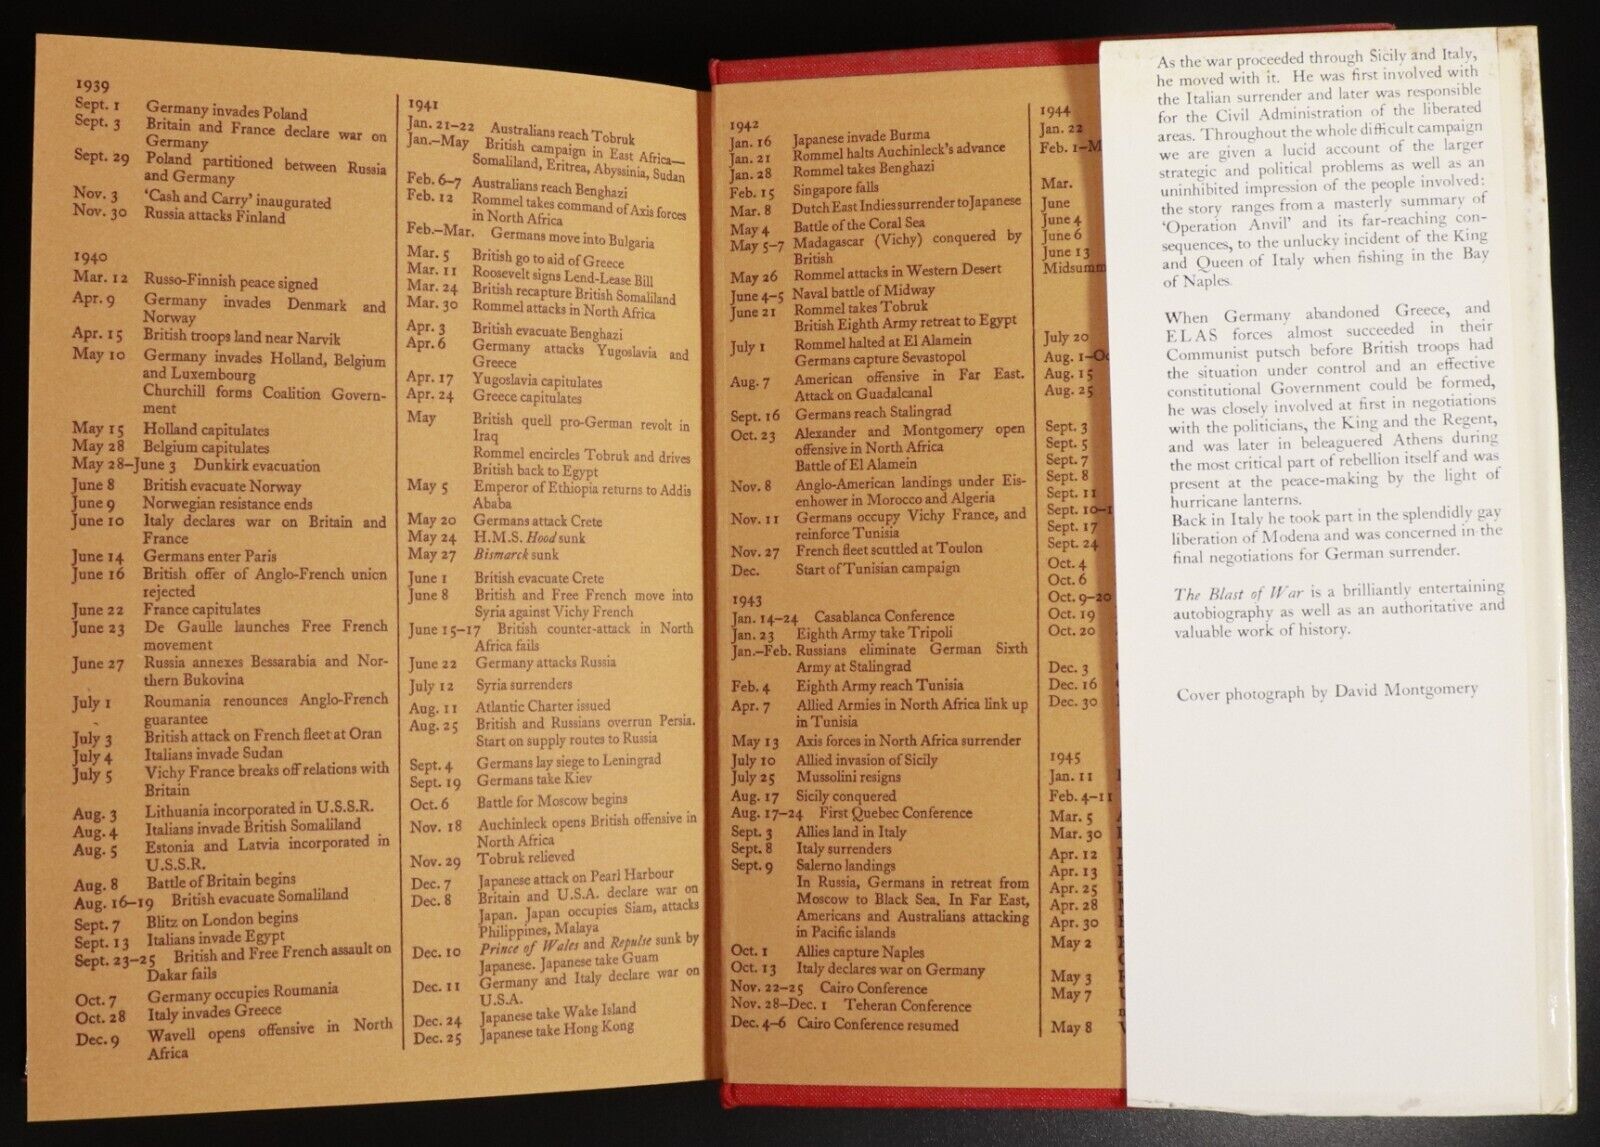 1939
Sept. 1 Germany invades Poland
Sept. 3 Britain and France declare war on
Germany
Sept. 29 Poland partitioned between Russia
and Germany
Nov. 3 'Cash and Carry' inaugurated
Nov. 30 Russia attacks Finland
1940
Mar. 12 Russo-Finnish peace signed
Apr. 9 Germany invades Denmark and
Norway
Apr. 15 British troops land near Narvik
May 10 Germany invades Holland, Belgium
and Luxembourg
Churchill forms Coalition Govern-
ment
May 15 Holland capitulates
May 28 Belgium capitulates
May 28–June 3 Dunkirk evacuation
June 8 British evacuate Norway
June 9 Norwegian resistance ends
June 10 Italy declares war on Britain and
France
June 14 Germans enter Paris
June 16 British offer of Anglo-French union
rejected
June 22 France capitulates
June 23 De Gaulle launches Free French
movement
June 27 Russia annexes Bessarabia and Nor-
thern Bukovina
July 1 Roumania renounces Anglo-French
guarantee
July 3 British attack on French fleet at Oran
July 4 Italians invade Sudan
July 5 Vichy France breaks off relations with
Britain
Aug. 3 Lithuania incorporated in U.S.S.R.
Aug. 4 Italians invade British Somaliland
Aug. 5 Estonia and Latvia incorporated in
U.S.S.R.
Aug. 8 Battle of Britain begins
Aug. 16–19 British evacuate Somaliland
Sept. 7 Blitz on London begins
Sept. 13 Italians invade Egypt
Sept. 23–25 British and Free French assault on
Dakar fails
Oct. 7 Germany occupies Roumania
Oct. 28 Italy invades Greece
Dec. 9 Wavell opens offensive in North
Africa
1941
Jan. 21–22 Australians reach Tobruk
Jan.–May British campaign in East Africa—
Somaliland, Eritrea, Abyssinia, Sudan
Feb. 6–7 Australians reach Benghazi
Feb. 12 Rommel takes command of Axis forces
in North Africa
Feb.–Mar. Germans move into Bulgaria
Mar. 5 British go to aid of Greece
Mar. 11 Roosevelt signs Lend-Lease Bill
Mar. 24 British recapture British Somaliland
Mar. 30 Rommel attacks in North Africa
Apr. 3 British evacuate Benghazi
Apr. 6 Germany attacks Yugoslavia and
Greece
Apr. 17 Yugoslavia capitulates
Apr. 24 Greece capitulates
May British quell pro-German revolt in
Iraq
Rommel encircles Tobruk and drives
British back to Egypt
May 5 Emperor of Ethiopia returns to Addis
Ababa
May 20 Germans attack Crete
May 24 H.M.S. Hood sunk
May 27 Bismarck sunk
June 1 British evacuate Crete
June 8 British and Free French move into
Syria against Vichy French
June 15–17 British counter-attack in North
Africa fails
June 22 Germany attacks Russia
July 12 Syria surrenders
Aug. 11 Atlantic Charter issued
Aug. 25 British and Russians overrun Persia.
Start on supply routes to Russia
Sept. 4 Germans lay siege to Leningrad
Sept. 19 Germans take Kiev
Oct. 6 Battle for Moscow begins
Nov. 18 Auchinleck opens British offensive in
North Africa
Nov. 29 Tobruk relieved
Dec. 7 Japanese attack on Pearl Harbour
Dec. 8 Britain and U.S.A. declare war on
Japan. Japan occupies Siam, attacks
Philippines, Malaya
Dec. 10 Prince of Wales and Repulse sunk by
Japanese. Japanese take Guam
Dec. 11 Germany and Italy declare war on
U.S.A.
Dec. 24 Japanese take Wake Island
Dec. 25 Japanese take Hong Kong
1942
Jan. 16 Japanese invade Burma
Jan. 21 Rommel halts Auchinleck's advance
Jan. 28 Rommel takes Benghazi
Feb. 15 Singapore falls
Mar. 8 Dutch East Indies surrender to Japanese
May 4 Battle of the Coral Sea
May 5–7 Madagascar (Vichy) conquered by
British
May 26 Rommel attacks in Western Desert
June 4–5 Naval battle of Midway
June 21 Rommel takes Tobruk
British Eighth Army retreat to Egypt
July 1 Rommel halted at El Alamein
Germans capture Sevastopol
Aug. 7 American offensive in Far East.
Attack on Guadalcanal
Sept. 16 Germans reach Stalingrad
Oct. 23 Alexander and Montgomery open
offensive in North Africa
Battle of El Alamein
Nov. 8 Anglo-American landings under Eis-
enhower in Morocco and Algeria
Nov. 11 Germans occupy Vichy France, and
reinforce Tunisia
Nov. 27 French fleet scuttled at Toulon
Dec. Start of Tunisian campaign
1943
Jan. 14–24 Casablanca Conference
Jan. 23 Eighth Army take Tripoli
Jan.–Feb. Russians eliminate German Sixth
Army at Stalingrad
Feb. 4 Eighth Army reach Tunisia
Apr. 7 Allied Armies in North Africa link up
in Tunisia
May 13 Axis forces in North Africa surrender
July 10 Allied invasion of Sicily
July 25 Mussolini resigns
Aug. 17 Sicily conquered
Aug. 17–24 First Quebec Conference
Sept. 3 Allies land in Italy
Sept. 8 Italy surrenders
Sept. 9 Salerno landings
In Russia, Germans in retreat from
Moscow to Black Sea. In Far East,
Americans and Australians attacking
in Pacific islands
Oct. 1 Allies capture Naples
Oct. 13 Italy declares war on Germany
Nov. 22–25 Cairo Conference
Nov. 28–Dec. 1 Teheran Conference
Dec. 4–6 Cairo Conference resumed
1944
Jan. 22
Feb. 1–M
Mar.
June
June 4
June 6
June 13
Midsumm
July 20
Aug. 1–Oc
Aug. 15
Aug. 25
Sept. 3
Sept. 5
Sept. 7
Sept. 8
Sept. 11
Sept. 10–1
Sept. 17
Sept. 24
Oct. 4
Oct. 6
Oct. 9–20
Oct. 19
Oct. 20
Dec. 3
Dec. 16
Dec. 30
1945
Jan. 11
Feb. 4–11
Mar. 5
Mar. 30
Apr. 12
Apr. 13
Apr. 25
Apr. 28
Apr. 30
May 2
May 3
May 7
May 8
As the war proceeded through Sicily and Italy,
he moved with it. He was first involved with
the Italian surrender and later was responsible
for the Civil Administration of the liberated
areas. Throughout the whole difficult campaign
we are given a lucid account of the larger
strategic and political problems as well as an
uninhibited impression of the people involved:
the story ranges from a masterly summary of
'Operation Anvil' and its far-reaching con-
sequences, to the unlucky incident of the King
and Queen of Italy when fishing in the Bay
of Naples.
When Germany abandoned Greece, and
ELAS forces almost succeeded in their
Communist putsch before British troops had
the situation under control and an effective
constitutional Government could be formed,
he was closely involved at first in negotiations
with the politicians, the King and the Regent,
and was later in beleaguered Athens during
the most critical part of rebellion itself and was
present at the peace-making by the light of
hurricane lanterns.
Back in Italy he took part in the splendidly gay
liberation of Modena and was concerned in the
final negotiations for German surrender.
The Blast of War is a brilliantly entertaining
autobiography as well as an authoritative and
valuable work of history.
Cover photograph by David Montgomery